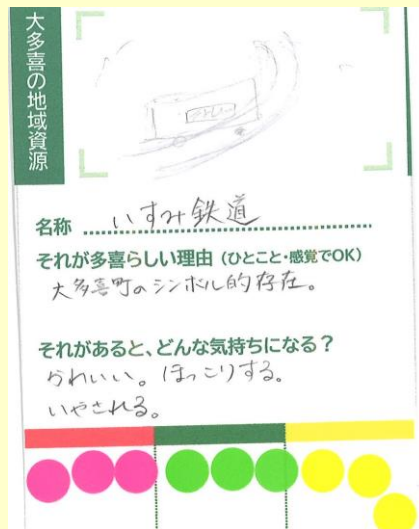 大多喜の地域資源
名称 いすみ鉄道
それが多喜らしい理由（ひとこと・感覚でOK）
大多喜町のシンボル的存在。
それがあると、どんな気持ちになる？
かわいい。ほっこりする。
いやされる。